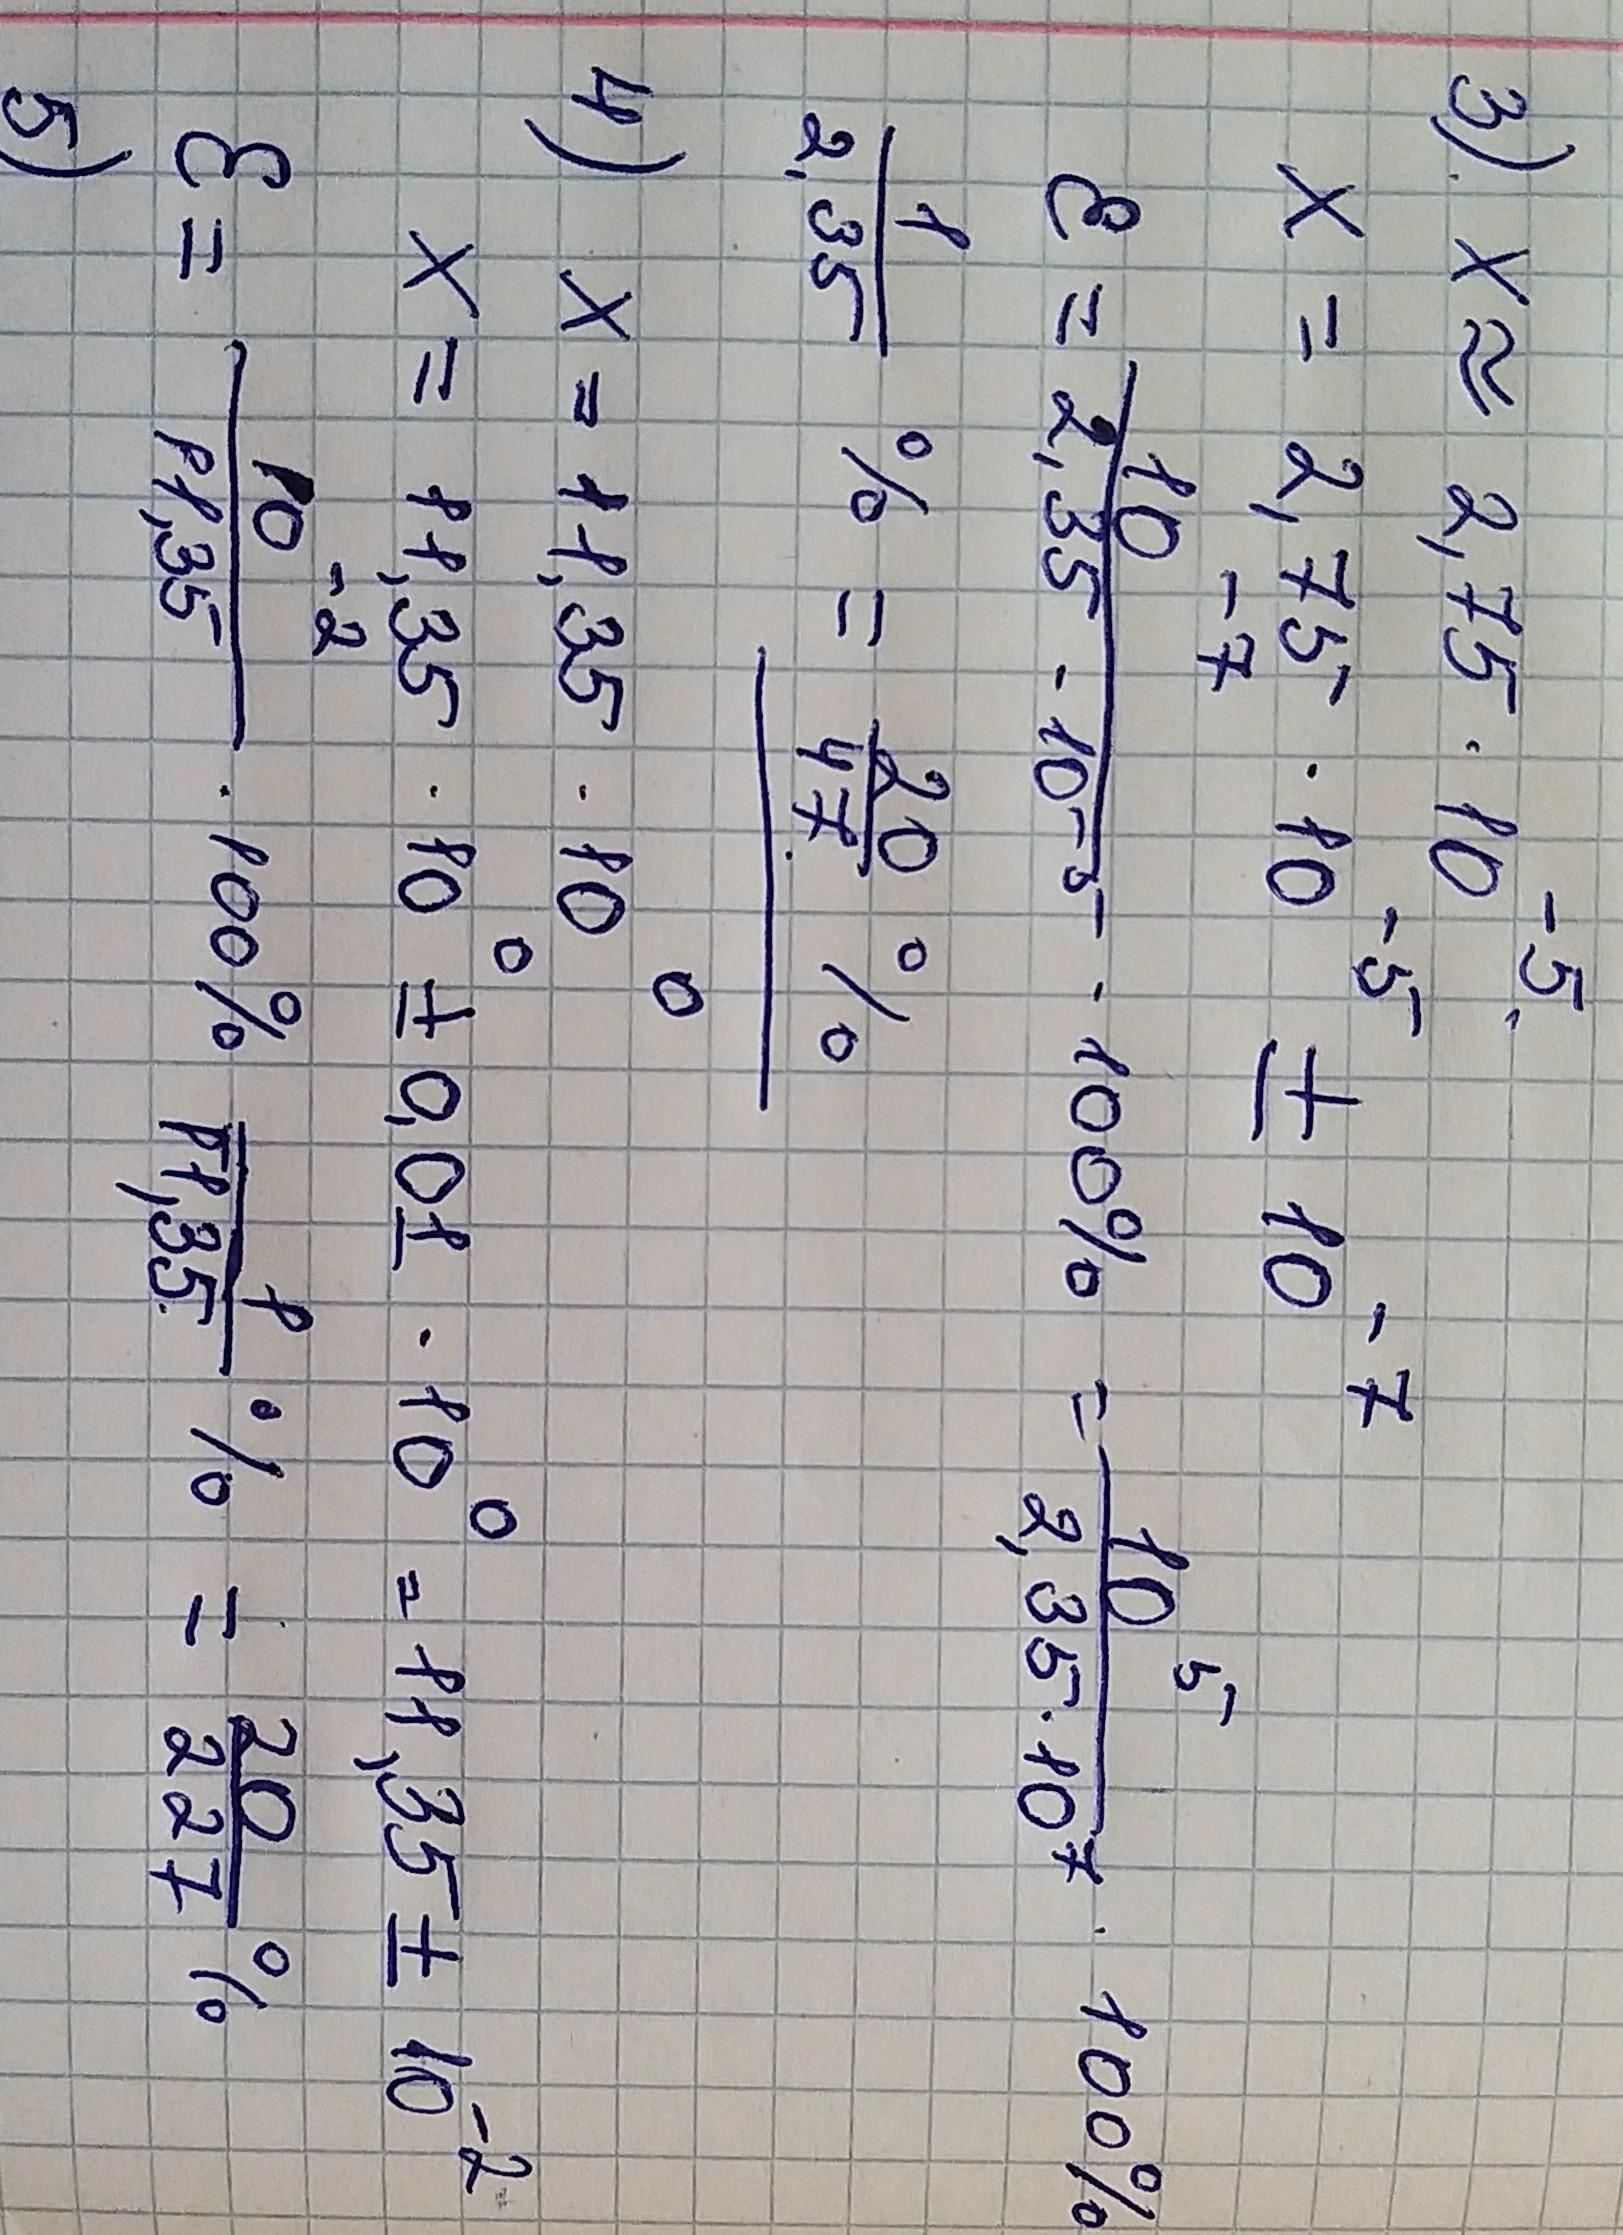 3). x ≈ 2,75 · 10⁻⁵;
x = 2,75 · 10⁻⁵ ± 10⁻⁷
ε = 10⁻⁷/(2,35 · 10⁻⁵) · 100% = 10⁵/(2,35 · 10⁷) · 100%
1/2,35 % = 20/47 %
4) x = 11,35 · 10⁰
x = 11,35 · 10⁰ ± 0,01 · 10⁰ = 11,35 ± 10⁻²
ε = 10⁻²/11,35 · 100% 1/11,35 % = 20/227 %
5)